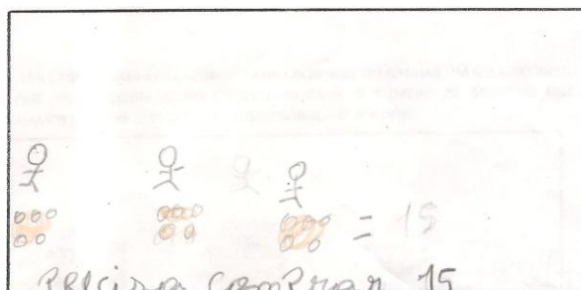 = 15
precisa comprar 15